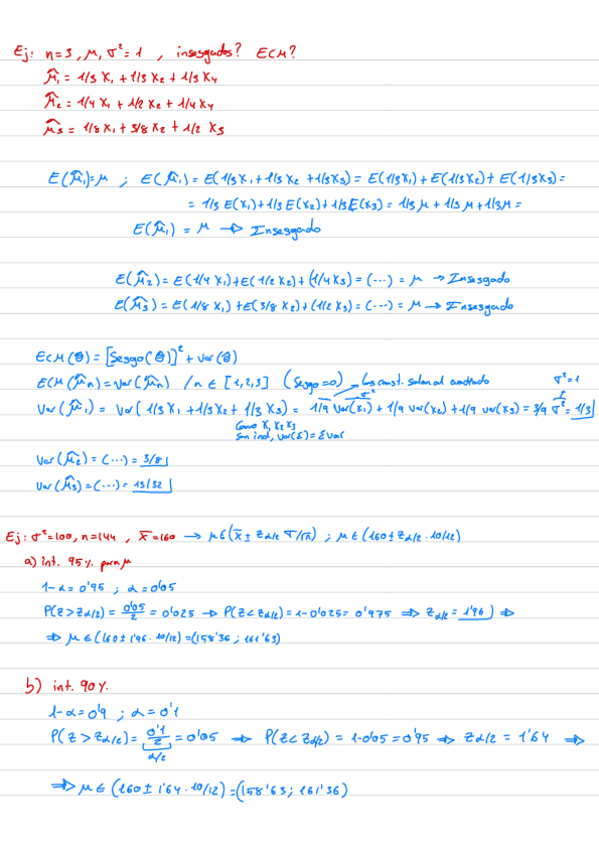 Ej: n=3, μ, σ²=1 , insesgados? ECM?
μ̂₁ = 1/3 X₁ + 1/3 X₂ + 1/3 X₄
μ̂₂ = 1/4 X₁ + 1/2 X₂ + 1/4 X₄
μ̂₃ = 1/8 X₁ + 3/8 X₂ + 1/2 X₃
E(μ̂₁)=μ ; E(μ̂₁) = E(1/3 X₁ + 1/3 X₂ + 1/3 X₃) = E(1/3 X₁) + E(1/3 X₂) + E(1/3 X₃) =
= 1/3 E(X₁) + 1/3 E(X₂) + 1/3 E(X₃) = 1/3 μ + 1/3 μ + 1/3 μ =
E(μ̂₁) = μ → Insesgado
E(μ̂₂) = E(1/4 X₁) + E(1/2 X₂) + (1/4 X₃) = (...) = μ → Insesgado
E(μ̂₃) = E(1/8 X₁) + E(3/8 X₂) + (1/2 X₃) = (...) = μ → Insesgado
ECM(θ̂) = [Sesgo(θ̂)]² + Var(θ̂)
ECM(μ̂n) = Var(μ̂n) / n ∈ [1,2,3] (Sesgo=0) Las const. salen al cuadrado σ²=1
Var(μ̂₁) = Var(1/3 X₁ + 1/3 X₂ + 1/3 X₃) = 1/9 Var(X₁) + 1/9 Var(X₂) + 1/9 Var(X₃) = 3/9 σ² = 1/3
σ²
Como X₁ X₂ X₃
son ind, Var(Σ) = Σ Var
Var(μ̂₂) = (...) = 3/8
Var(μ̂₃) = (...) = 13/32
Ej: σ²=100, n=144 , X̄=160 → μ∈(X̄ ± Zα/2 σ/√n) ; μ∈(160 ± Zα/2 · 10/12)
a) int. 95% para μ
1-α = 0'95 ; α = 0'05
P(Z > Zα/2) = 0'05/2 = 0'025 → P(Z < Zα/2) = 1-0'025 = 0'975 ⇒ Zα/2 = 1'96 ⇒
⇒ μ∈(160 ± 1'96 · 10/12) = (158'36 ; 161'63)
b) int. 90%.
1-α = 0'9 ; α = 0'1
P(Z > Zα/2) = 0'1/2 = 0'05 ⇒ P(Z < Zα/2) = 1-0'05 = 0'95 ⇒ Zα/2 = 1'64 ⇒
α/2
⇒ μ∈(160 ± 1'64 · 10/12) = (158'63 ; 161'36)